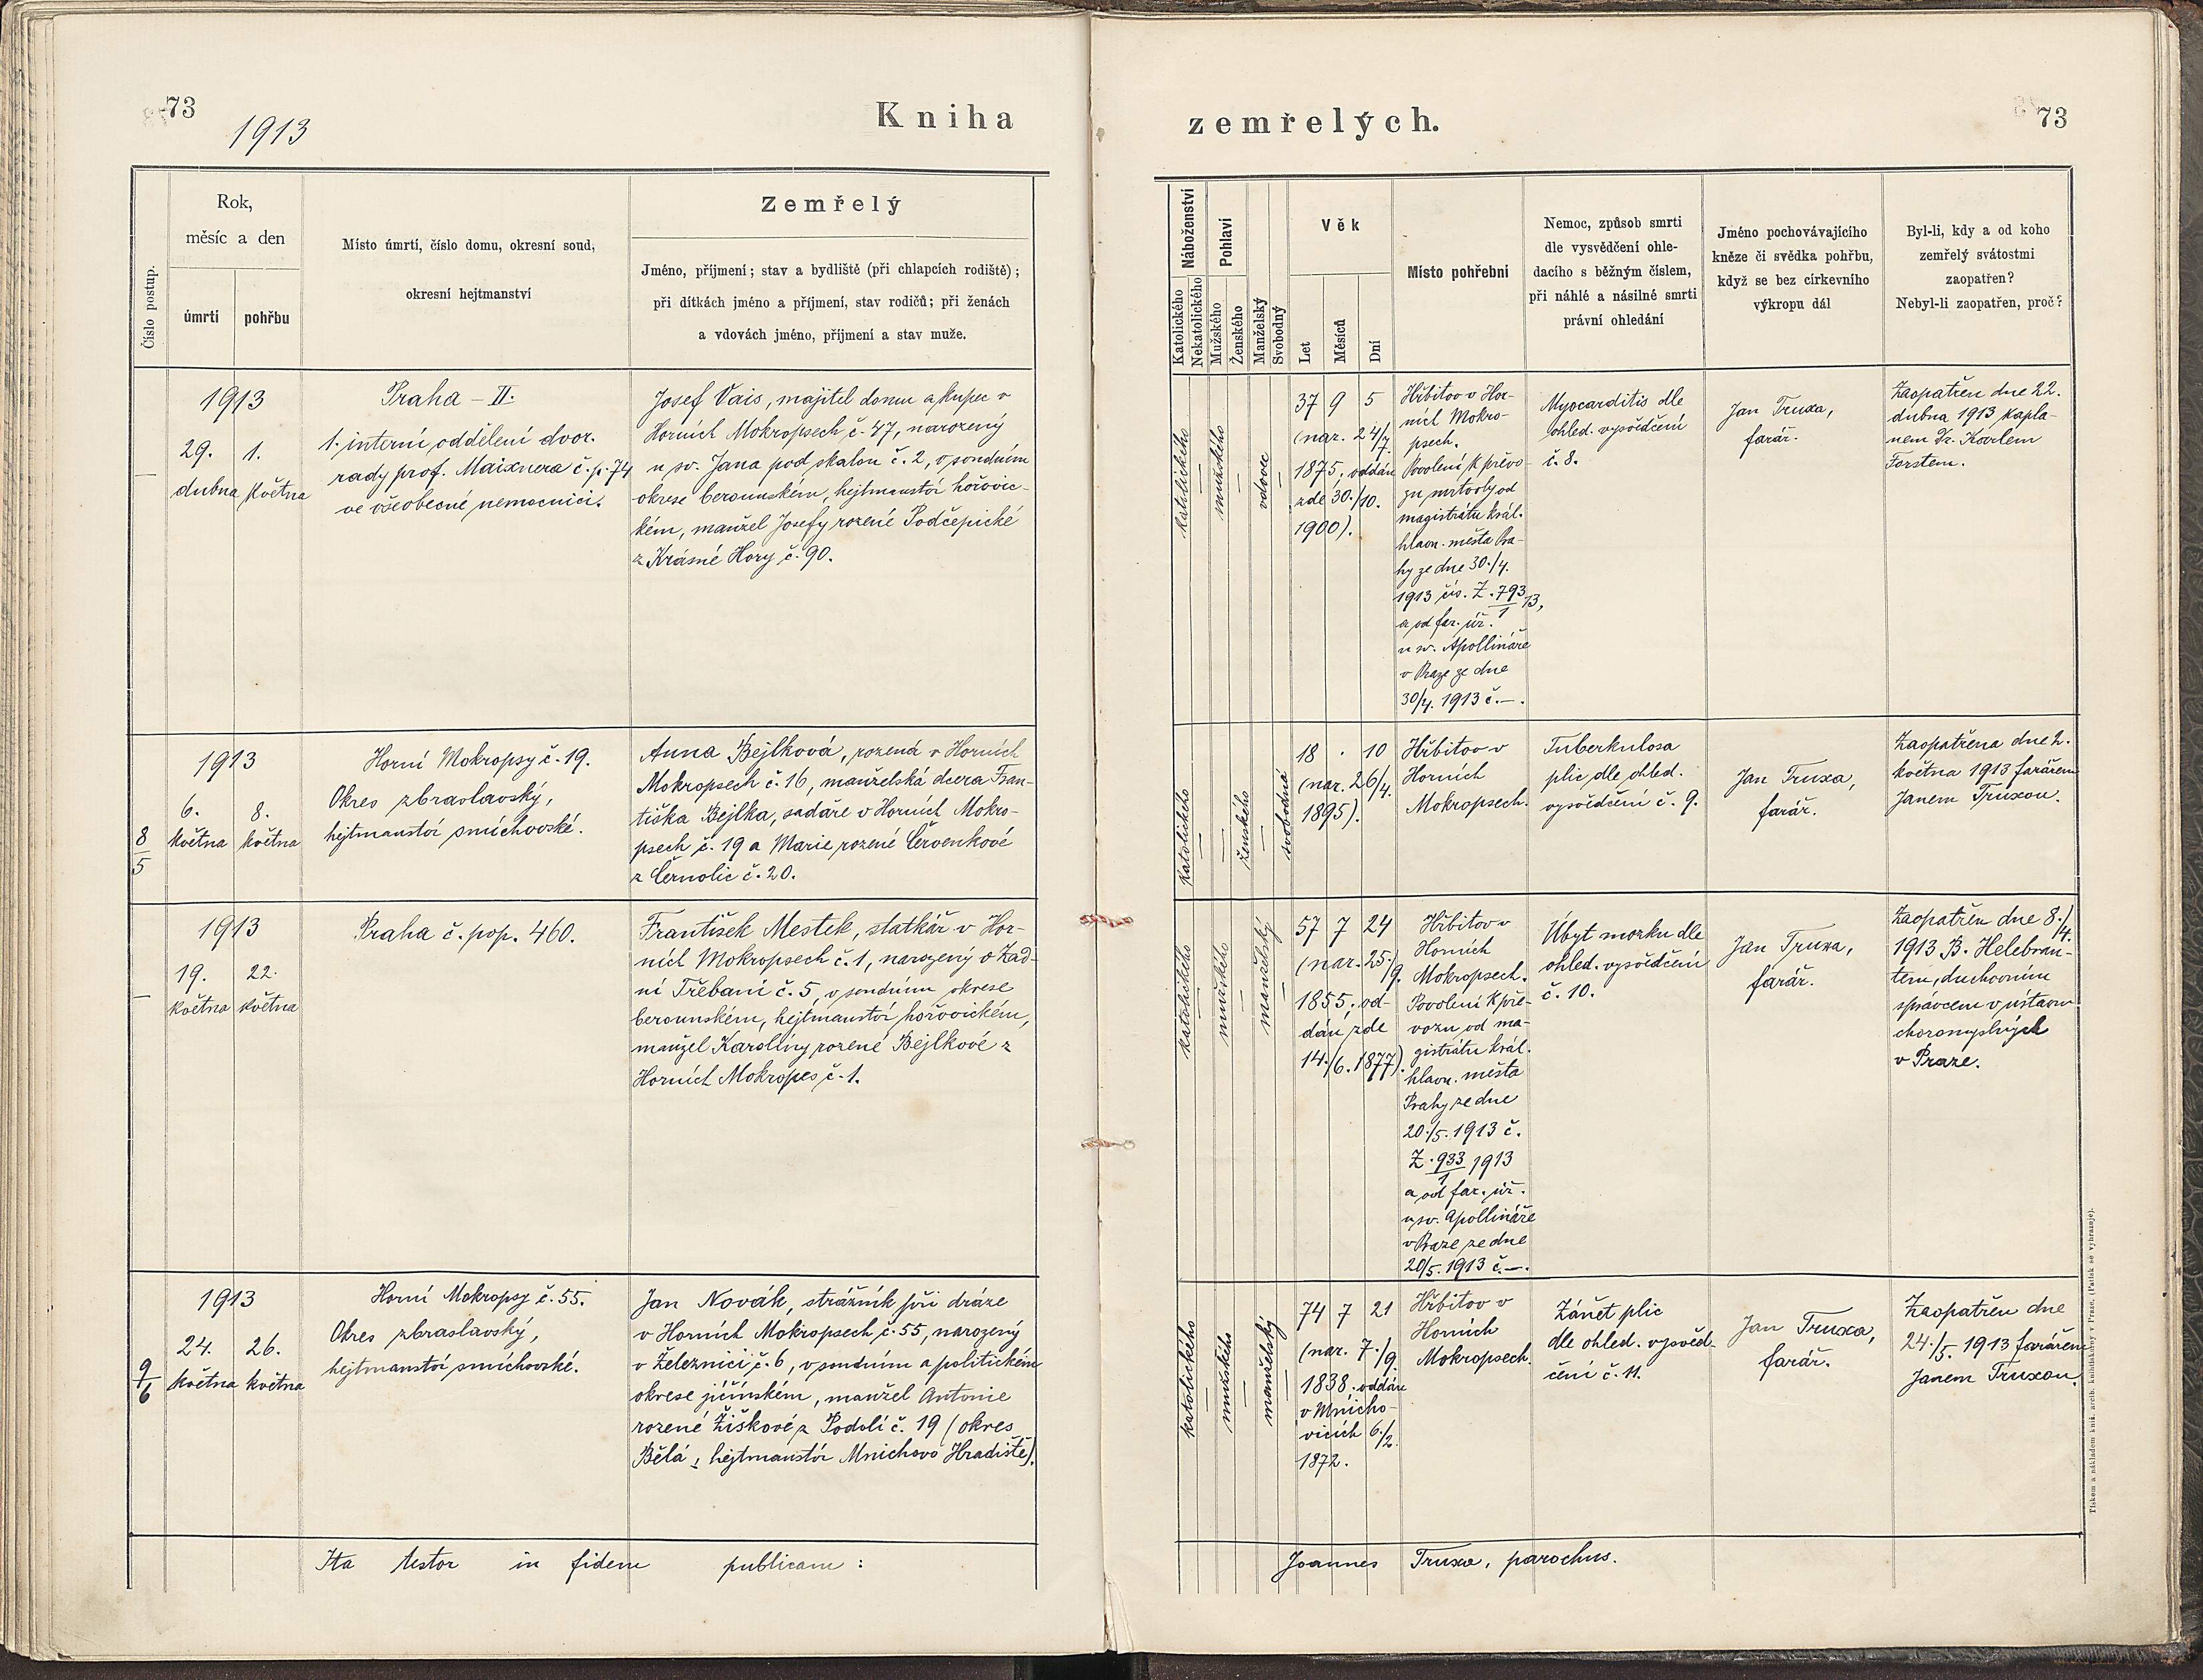 73
1913
Kniha
Číslo postup.
Rok,
měsíc a den
úmrtí
pohřbu
Místo úmrtí, číslo domu, okresní soud,
okresní hejtmanství
Zemřelý
Jméno, příjmení; stav a bydliště (při chlapcích rodiště);
při dítkách jméno a příjmení, stav rodičů; při ženách
a vdovách jméno, příjmení a stav muže.
—
1913
29. 1.
dubna května
Praha – II.
1. interní oddělení dvor.
rady prof. Maixnera č. p. 74
ve všeobecné nemocnici.
Josef Vais, majitel domu a kupec v
Horních Mokropsech č. 47, narozený
u sv. Jana pod skalou č. 2, v soudním
okrese berounském, hejtmanství hořovic-
kém, manžel Josefy rozené Podčepické
z Krásné Hory č. 90.
8/5
1913
6. 8.
května května
Horní Mokropsy č. 19.
Okres zbraslavský,
hejtmanství smíchovské.
Anna Bejlková, rozená v Horních
Mokropsech č. 16, manželská dcera Fran-
tiška Bejlka, sadaře v Horních Mokro-
psech č. 19 a Marie rozené Červenkové
z Černolic č. 20.
—
1913
19. 22.
května května
Praha č. pop. 460.
František Mestek, statkář v Hor-
ních Mokropsech č. 1, narozený v Zad-
ní Třebani č. 5, v soudním okrese
berounském, hejtmanství hořovickém,
manžel Karolíny rozené Bejlkové z
Horních Mokropes č. 1.
9/6
1913
24. 26.
května května
Horní Mokropsy č. 55.
Okres zbraslavský,
hejtmanství smíchovské.
Jan Novák, strážník při dráze
v Horních Mokropsech č. 55, narozený
v Železnici č. 6, v soudním a politickém
okrese jičínském, manžel Antonie
rozené Žiškové z Podolí č. 19 (okres
Bělá, hejtmanství Mnichovo Hradiště).
Ita testor in fidem publicam:
zemřelých.
73
Náboženství
Katolického
Nekatolického
Pohlaví
Mužského
Ženského
Manželský
Svobodný
Věk
Let
Měsíců
Dní
Místo pohřební
Nemoc, způsob smrti
dle vysvědčení ohle-
dacího s běžným číslem,
při náhlé a násilné smrti
právní ohledání
Jméno pochovávajícího
kněze či svědka pohřbu,
když se bez církevního
výkropu dál
Byl-li, kdy a od koho
zemřelý svátostmi
zaopatřen?
Nebyl-li zaopatřen, proč?
katolického
—
mužského
—
vdovec
37 9 5
(nar. 24/7.
1875; oddán
zde 30./10.
1900).
Hřbitov v Hor-
ních Mokro-
psech.
Povolení k převo-
zu mrtvoly od
magistrátu král.
hlavn. města Pra-
hy ze dne 30./4.
1913 čís. Z. 793/1 13,
a od far. úř.
u sv. Apollináře
v Praze ze dne
30/4. 1913 č. —.
Myocarditis dle
ohled. vysvědčení
č. 8.
Jan Truxa,
farář.
Zaopatřen dne 22.
dubna 1913 kapla-
nem Dr. Karlem
Forstem.
katolického
—
—
ženského
—
svobodná
18 . 10
(nar. 26/4.
1895).
Hřbitov v
Horních
Mokropsech.
Tuberkulosa
plic dle ohled.
vysvědčení č. 9.
Jan Truxa,
farář.
Zaopatřena dne 2.
května 1913 farářem
Janem Truxou.
katolického
—
mužského
—
manželský
—
57 7 24
(nar. 25./9.
1855; od-
dán zde
14./6. 1877).
Hřbitov v
Horních
Mokropsech.
Povolení k pře-
vozu od ma-
gistrátu král.
hlavn. města
Prahy ze dne
20./5. 1913 č.
Z. 933/1 1913
a od far. úř.
u sv. Apollináře
v Praze ze dne
20/5. 1913 č. —.
Úbyt mozku dle
ohled. vysvědčení
č. 10.
Jan Truxa,
farář.
Zaopatřen dne 8./4.
1913 B. Helebran-
tem, duchovním
správcem v ústavu
choromyslných
v Praze.
katolického
—
mužského
—
manželský
—
74 7 21
(nar. 7./9.
1838. oddán
v Mnicho-
vicích 6./2.
1872.
Hřbitov v
Horních
Mokropsech.
Zánět plic
dle ohled. vysvěd-
čení č. 11.
Jan Truxa,
farář.
Zaopatřen dne
24./5. 1913 farářem
Janem Truxou.
Joannes Truxa, parochus.
Tiskem a nákladem kníž. arcib. knihtiskárny v Praze. (Patisk se vyhrazuje).